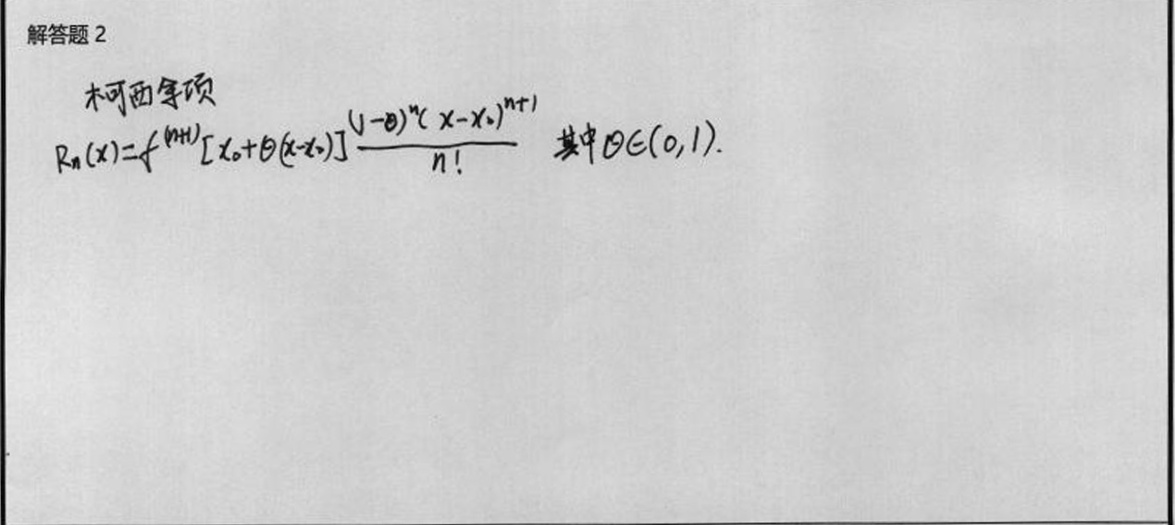 解答题 2
柯西余项
Rₙ(x)=f⁽ⁿ⁺¹⁾[x₀+θ(x-x₀)] (1-θ)ⁿ(x-x₀)ⁿ⁺¹/n! 其中θ∈(0,1).